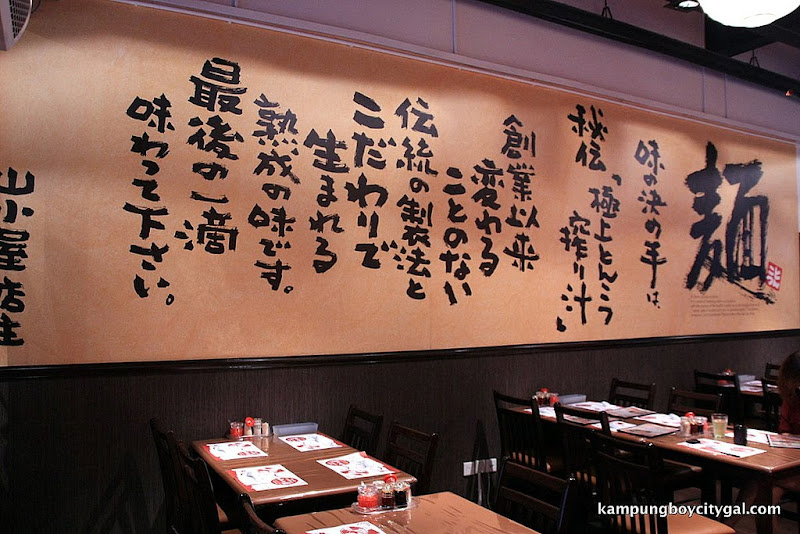 麺
味の決め手は、
秘伝「極上とんこつ
搾り汁」
創業以来
変わる
ことのない
伝統の製法と
こだわりで
生まれる
熟成の味です。
最後の一滴
味わって下さい。
山小屋店主
kampungboycitygal.com